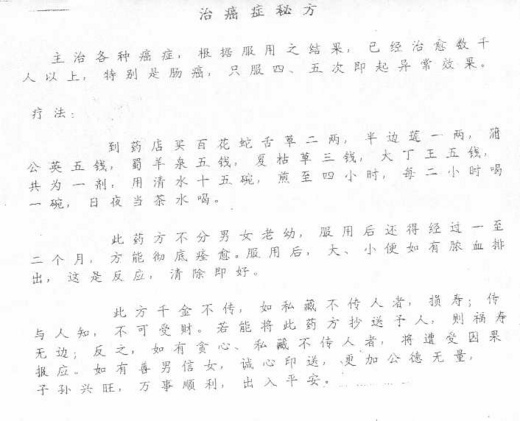 治癌症秘方
主治各种癌症，根据服用之结果，已经治愈数千
人以上，特别是肠癌，只服四、五次即起异常效果。
疗法：
到药店买百花蛇舌草二两，半边莲一两，蒲
公英五钱，蜀羊泉五钱，夏枯草三钱，大丁王五钱，
共为一剂；用清水十五碗，煎至四小时，每二小时喝
一碗，日夜当茶水喝。
此药方不分男女老幼，服用后还得经过一至
二个月，方能彻底痊愈。服用后，大、小便如有脓血排
出，这是反应，清除即好。
此方千金不传，如私藏不传人者，损寿；传
与人知，不可受财。若能将此药方抄送予人，则福寿
无边；反之，如有贪心、私藏不传人者，将遭受因果
报应。如有善男信女，诚心印送，更加公德无量，
子孙兴旺，万事顺利，出入平安。